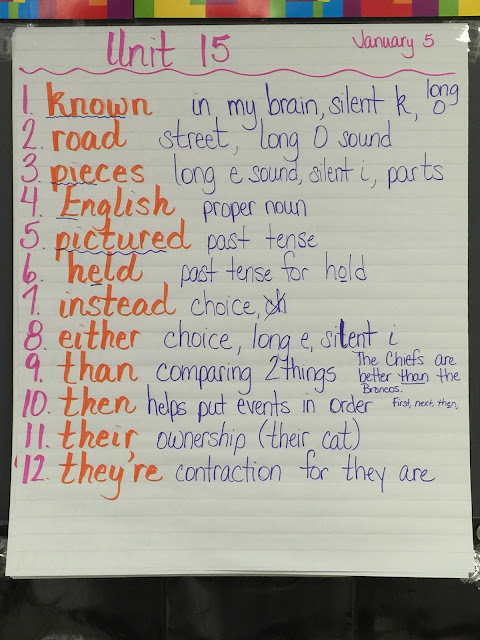 Unit 15
January 5
1. known in my brain, silent k, long O
2. road street, long O sound
3. pieces long e sound, silent i, parts
4. English proper noun
5. pictured past tense
6. held past tense for hold
7. instead choice,
8. either choice, long e, silent i
9. than comparing 2 things The Chiefs are
better than the
Broncos.
10. then helps put events in order First, next, then,
11. their ownership (their cat)
12. they're contraction for they are